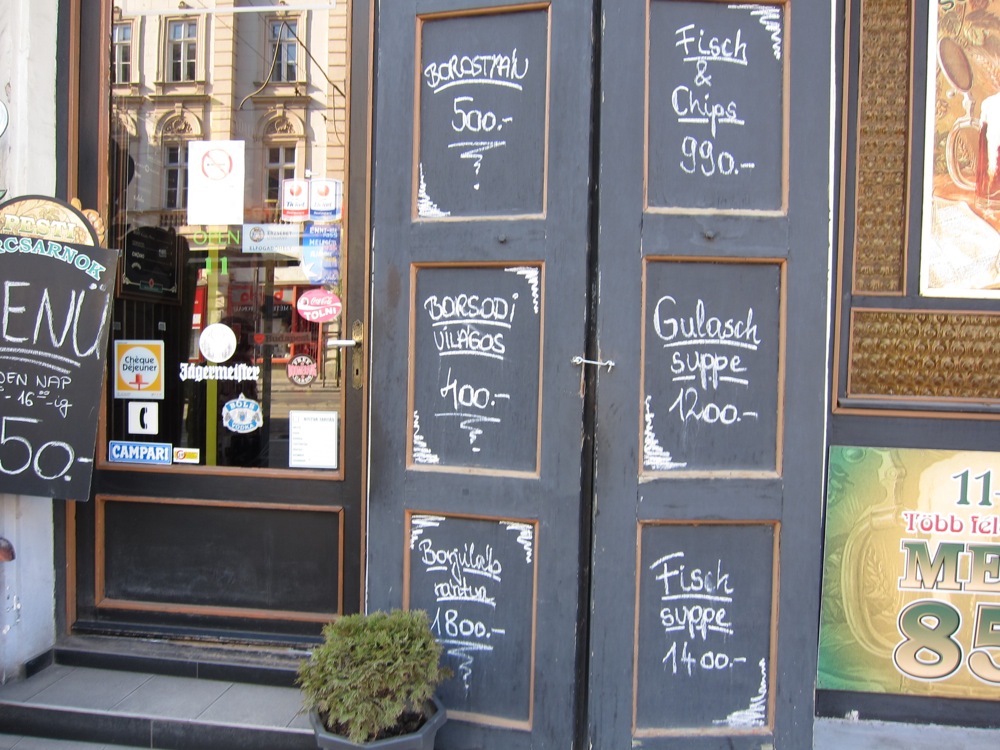 PESTI
RCSARNOK
ENÜ
DEN NAP
50.-
OPEN
11
Coca-Cola
TOLNI
Chèque
Déjeuner
Jägermeister
BOLS
VODKA
CAMPARI
BOROSTYÁN
500.-
BORSODI
VILÁGOS
400.-
Borjúláb
rántva
1800.-
Fisch
&
Chips
990.-
Gulasch
suppe
1200.-
Fisch
suppe
1400.-
11-
Több fél
ME
85